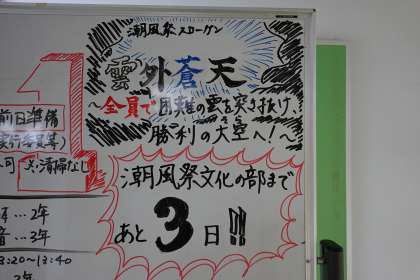 潮風祭スローガン
雲外蒼天
〜全員で困難の雲を突き抜け、
勝利の大空へ!〜
潮風祭文化の部まで
あと3日!!
1
前日準備
可 ※清掃なし
…2年
…3年
13:20〜13:40